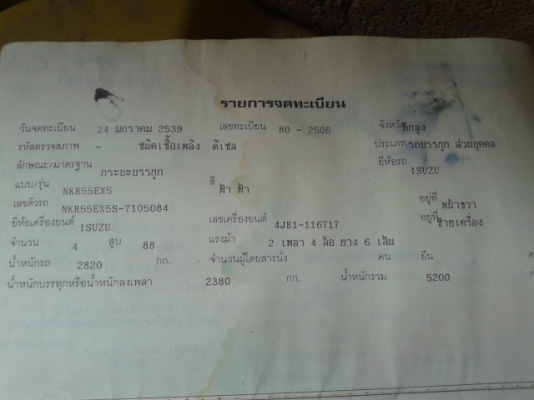 รายการจดทะเบียน
วันจดทะเบียน 24 มกราคม 2539 เลขทะเบียน 80 - 2506 จังหวัด พัทลุง
รหัสตรวจสภาพ - ชนิดเชื้อเพลิง ดีเซล ประเภท รถบรรทุก ส่วนบุคคล
ลักษณะ/มาตรฐาน กระบะบรรทุก ยี่ห้อรถ ISUZU
แบบ/รุ่น NKR55EX5 สี ฟ้า ฟ้า
เลขตัวรถ NKR55EX5S-7105084 อยู่ที่ หน้าขวา
ยี่ห้อเครื่องยนต์ ISUZU เลขเครื่องยนต์ 4JB1-116717 อยู่ที่ ซ้ายเครื่อง
จำนวน 4 สูบ 88 แรงม้า 2 เพลา 4 ล้อ ยาง 6 เส้น
น้ำหนักรถ 2820 กก. จำนวนผู้โดยสารนั่ง คน ยืน
น้ำหนักบรรทุกหรือน้ำหนักลงเพลา 2380 กก. น้ำหนักรวม 5200